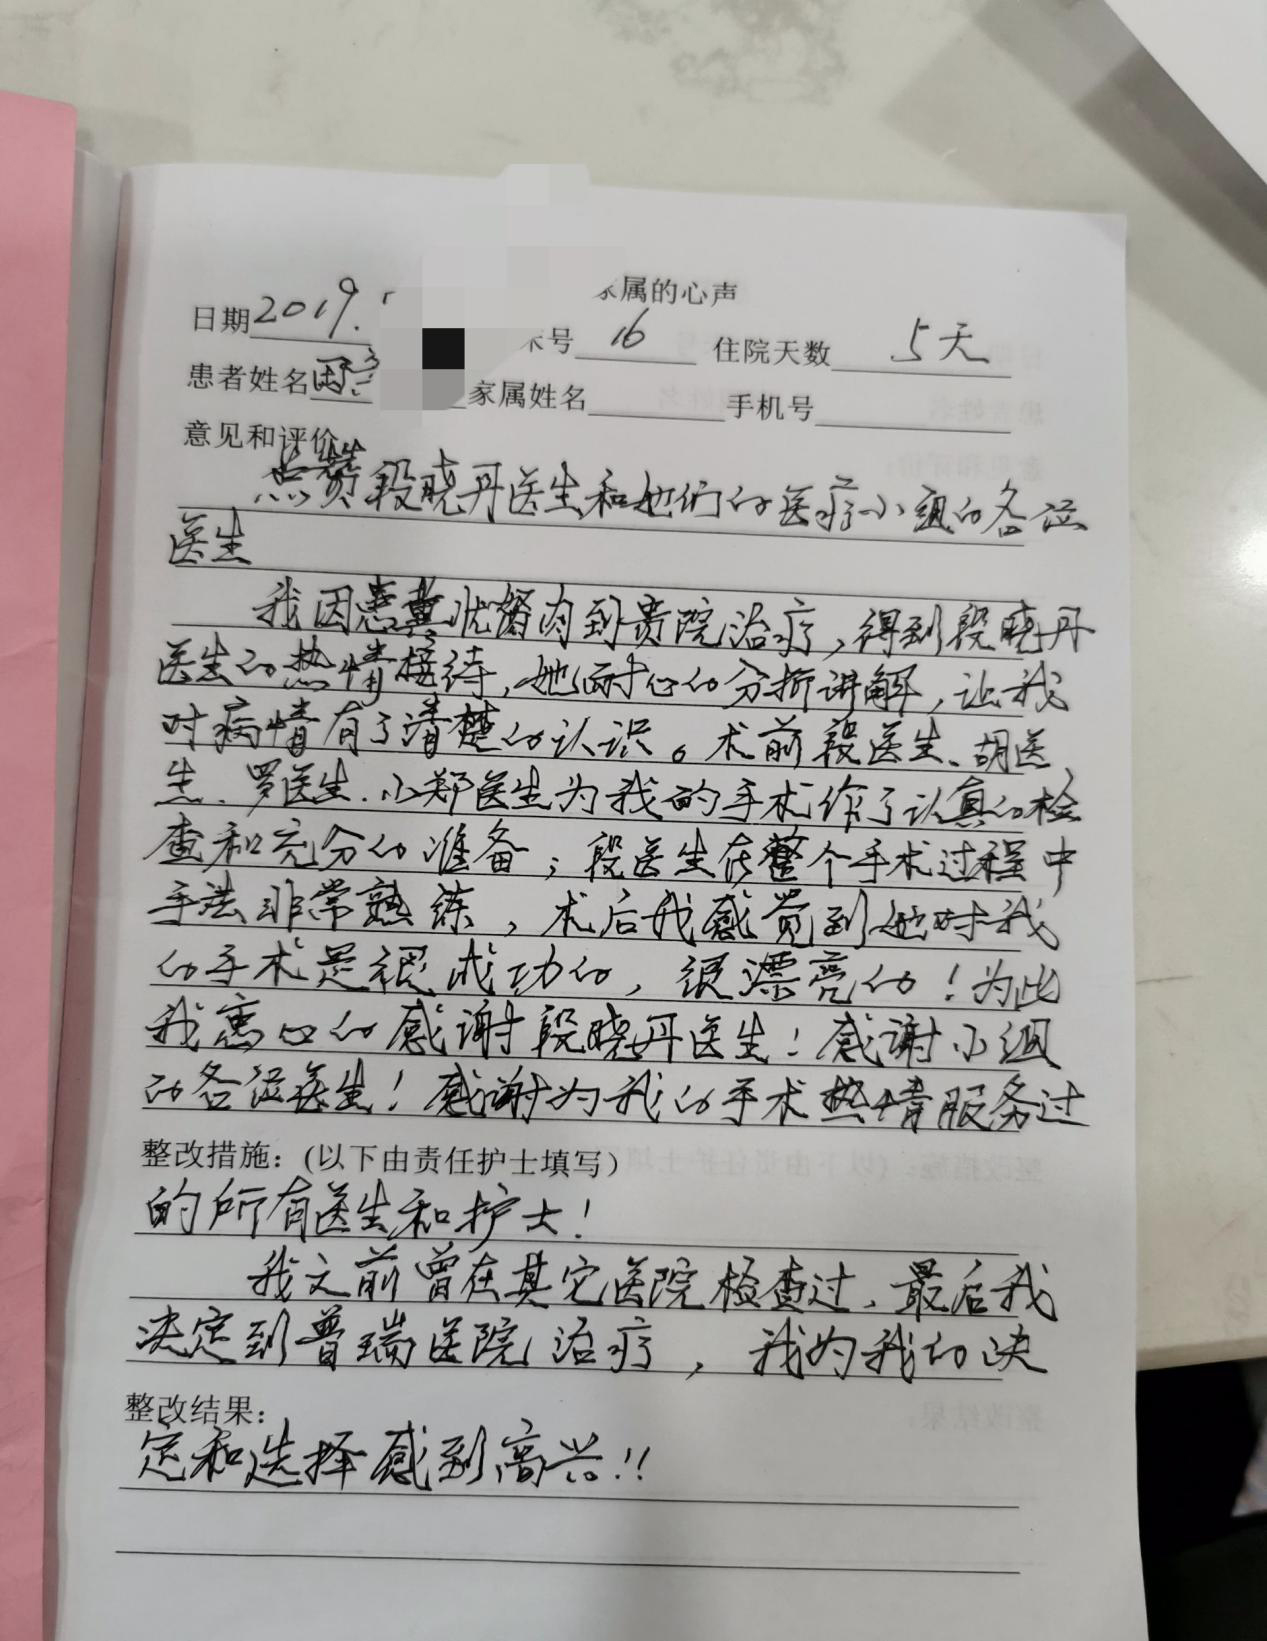 属的心声
日期2019.
号 16 住院天数 5天
患者姓名 家属姓名 手机号
意见和评价
点赞段晓丹医生和她们的医疗小组的各位
医生
我因患翼状胬肉到贵院治疗，得到段晓丹
医生的热情接待，她耐心的分析讲解，让我
对病情有了清楚的认识。术前段医生、胡医
生、罗医生、小郑医生为我的手术作了认真的检
查和充分的准备；段医生在整个手术过程中
手法非常熟练，术后我感觉到她对我
的手术是很成功的，很漂亮的！为此
我衷心的感谢段晓丹医生！感谢小组
的各位医生！感谢为我的手术热情服务过
整改措施：(以下由责任护士填写)
的所有医生和护士！
我之前曾在其它医院检查过，最后我
决定到普瑞医院治疗，我为我的决
整改结果：
定和选择感到高兴！！